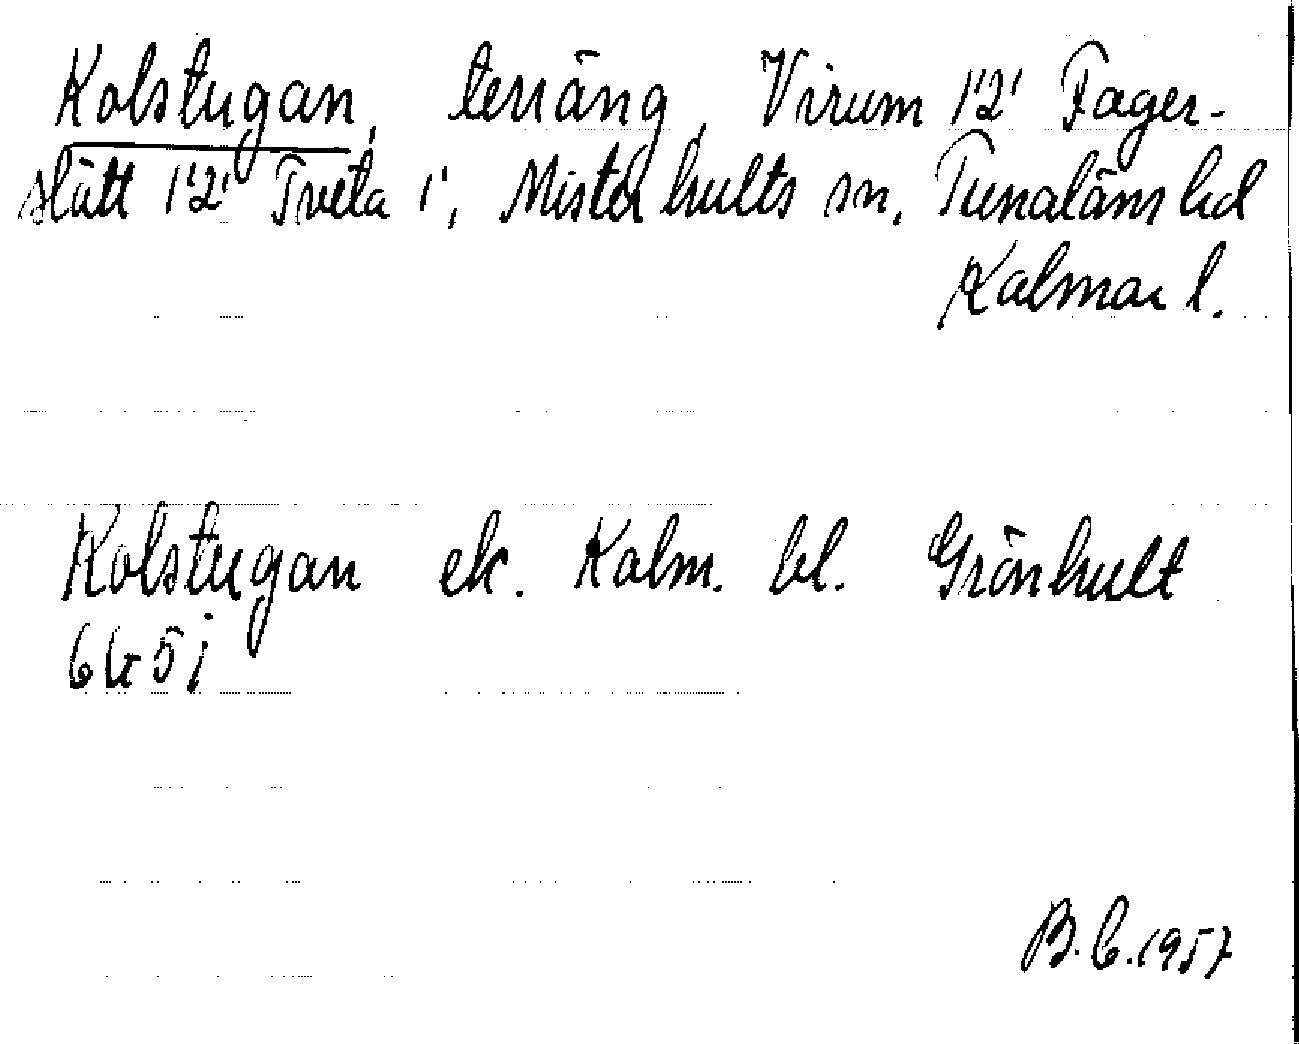 Kolstugan, terräng, Virum 1'2' Fager-
slätt 1'2' Tveta 1', Misterhults sn, Tunaläns hd
Kalmar l.
Kolstugan ek. Kalm. bl. Grönhult
6G5j
B.C.1957